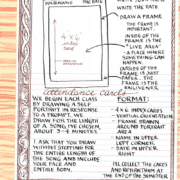 WRITE THE DATE
DRAW A FRAME
THE FRAME IS
IMPORTANT.
INSIDE OF THE
FRAME IS THE
"LIVE AREA"
A PLACE WHERE
SOMETHING CAN
HAPPEN.
OUTSIDE OF THE
FRAME IS JUST
PAPER. THE
FRAME IS THE
4 x 6
attendance cards
WE BEGIN EACH CLASS
BY DRAWING A SELF
PORTRAIT IN RESPONSE
TO A PROMPT. WE
DRAW FOR THE LENGTH
OF A SONG I'VE CHOSEN
ABOUT 3-4 MINUTES.
I ASK THAT YOU DRAW
WITHOUT STOPPING FOR
THE ENTIRE LENGTH OF
THE SONG AND INCLUDE
YOUR FACE AND
ENTIRE BODY.
FORMAT:
4 x 6 INDEX CARDS
VERTICAL ORIENTATION
FRAME DRAWN
AROUND PORTRAIT
AREA
NAME IN UPPER
LEFT CORNER.
DATE IN UPPER
RIGHT
I'LL COLLECT THE CARDS
AND RETURN THEM AT
THE END OF THE SEMESTER